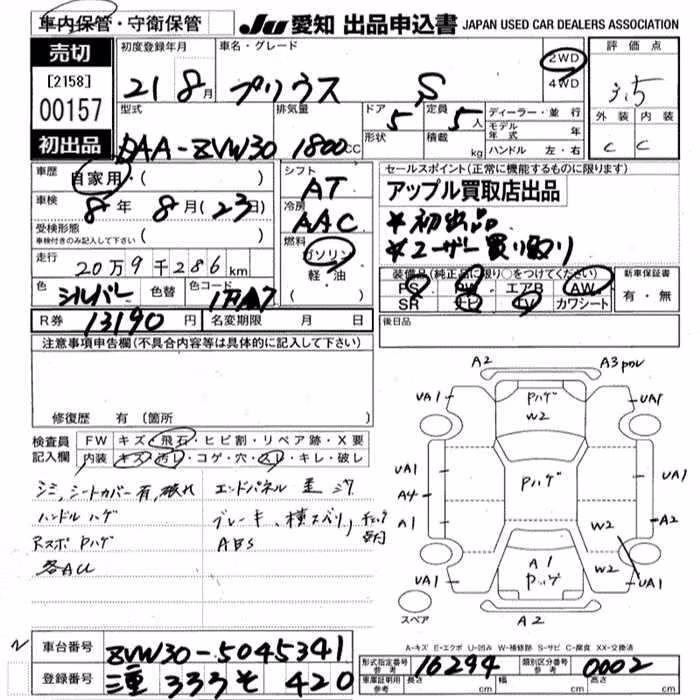 車内保管・守衛保管
JU 愛知 出品申込書 JAPAN USED CAR DEALERS ASSOCIATION
売切
[2158]
00157
初出品
初度登録年月
21 8月
車名・グレード
プリウス S
2WD
4WD
評価点
3.5
外装 内装
C C
型式
DAA-ZVW30
排気量
1800cc
ドア
5
形状
定員
5人
積載
kg
ディーラー・並行
モデル年式 年
ハンドル 左・右
車歴
自家用・( )
車検
8年 8月(23日)
受検形態
車検付きのみ記入して下さい ( )
走行
20万9千286km
色
シルバー
色替
色コード
1F7
シフト
AT
冷房
AAC
燃料
ガソリン
軽・油
( )
セールスポイント(正常に機能するものに限ります)
アップル買取店出品
*初出品
*ユーザー買い取り
装備品(純正品に限り○をつけてください)
PS PW エアB AW
SR ナビ TV カワシート
新車保証書
有・無
R券 13190円 名変期限 月 日
後日品
注意事項申告欄(不具合内容等は具体的に記入して下さい)
修復歴 有(箇所
検査員記入欄
FW キズ・飛石・ヒビ割・リペア跡・X要
内装 キズ・汚レ・コゲ・穴・スレ・キレ・破レ
シミ,シートカバー有,破れ エンドパネル 歪
ハンドル ハゲ ブレーキ、横スベリ,
Rスポ Pハゲ ABS
各AU
A2 A3
UA1 Pハゲ UA1
W2
UA1 Pハゲ UA1
A4
A1 W2 A2
A1 W2
UA1 Pハゲ UA1
スペア
A2
A-キズ E-エクボ U-凹み W-補修跡 S-サビ C-腐食 XX-交換済
車台番号 ZVW30-5045341
登録番号 三重 333 そ 420
形式指定番号 参考 16294 類別区分番号 参考 0002
車庫証明用 参考 長さ cm 幅 cm 高さ cm